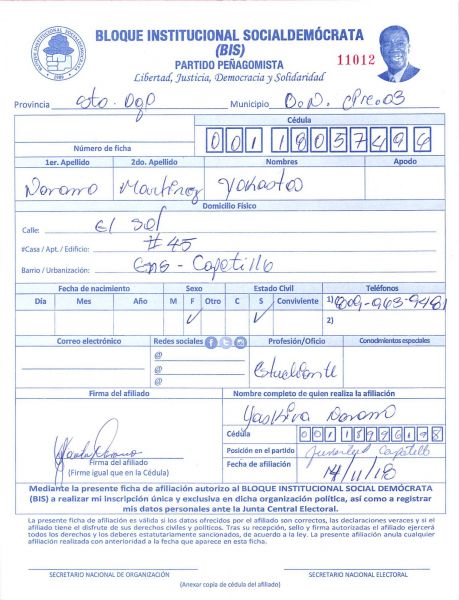 BLOQUE INSTITUCIONAL SOCIALDEMÓCRATA
(BIS)
PARTIDO PEÑAGOMISTA
11012
Libertad, Justicia, Democracia y Solidaridad
Provincia Sto. Dgo Municipio D.N.
Cédula
Número de ficha
1er. Apellido 2do. Apellido Nombres Apodo
Martinez
Domicilio Físico
Calle: El Sol
#Casa / Apt. / Edificio: #45
Barrio / Urbanización: Ens - Capotillo
Fecha de nacimiento Sexo Estado Civil Teléfonos
Día Mes Año M F Otro C S Conviviente 1)
2)
Correo electrónico Redes sociales Profesión/Oficio Conocimientos especiales
@
@
@
Estudiante
Firma del afiliado Nombre completo de quien realiza la afiliación
Cédula
Posición en el partido Capotillo
Fecha de afiliación 14/11/18
Firma del afiliado
(Firme igual que en la Cédula)
Mediante la presente ficha de afiliación autorizo al BLOQUE INSTITUCIONAL SOCIAL DEMÓCRATA
(BIS) a realizar mi inscripción única y exclusiva en dicha organización política, así como a registrar
mis datos personales ante la Junta Central Electoral.
La presente ficha de afiliación es válida si los datos ofrecidos por el afiliado son correctos, las declaraciones veraces y si el
afiliado tiene el disfrute de sus derechos civiles y políticos. Tras su registro, sello y firma autorizadas el afiliado ejercerá
todos los derechos y los deberes estatutariamente sancionados, de acuerdo a la ley. La presente afiliación anula cualquier
afiliación realizada con anterioridad a la fecha que aparece en esta ficha.
SECRETARIO NACIONAL DE ORGANIZACIÓN SECRETARIO NACIONAL ELECTORAL
(Anexar copia de cédula del afiliado)